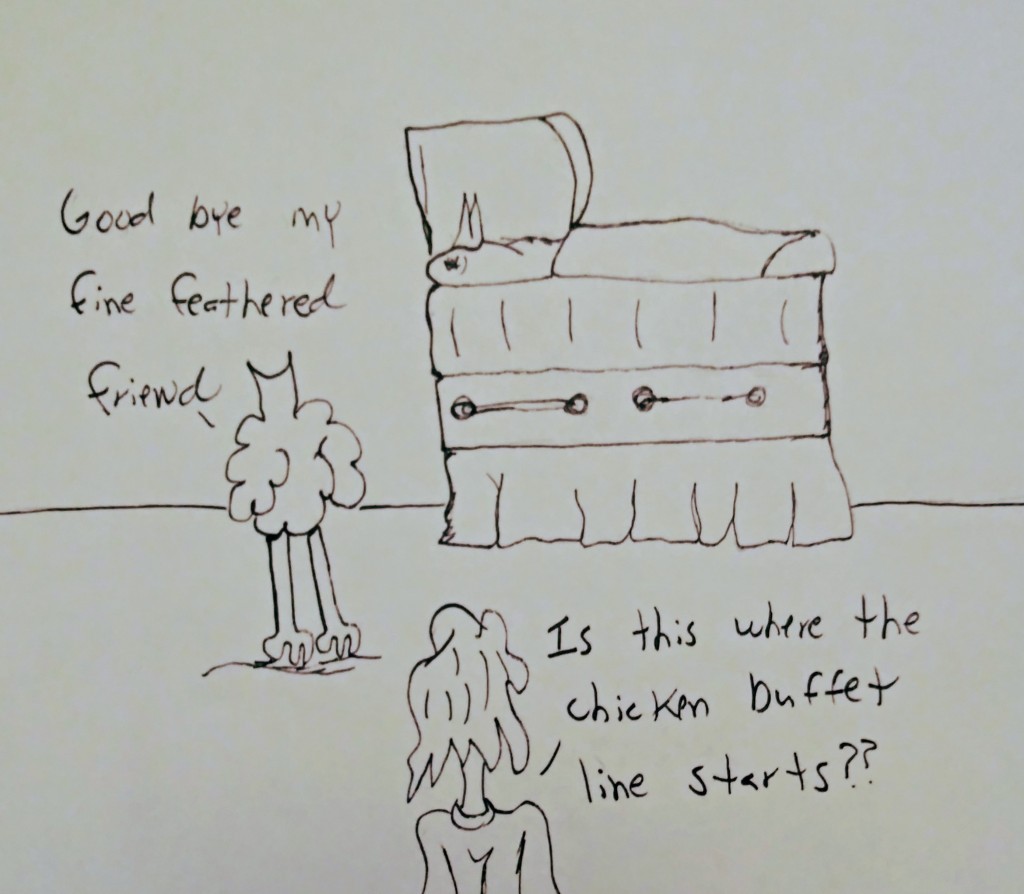 Good bye my
fine feathered
friend
Is this where the
chicken buffet
line starts??